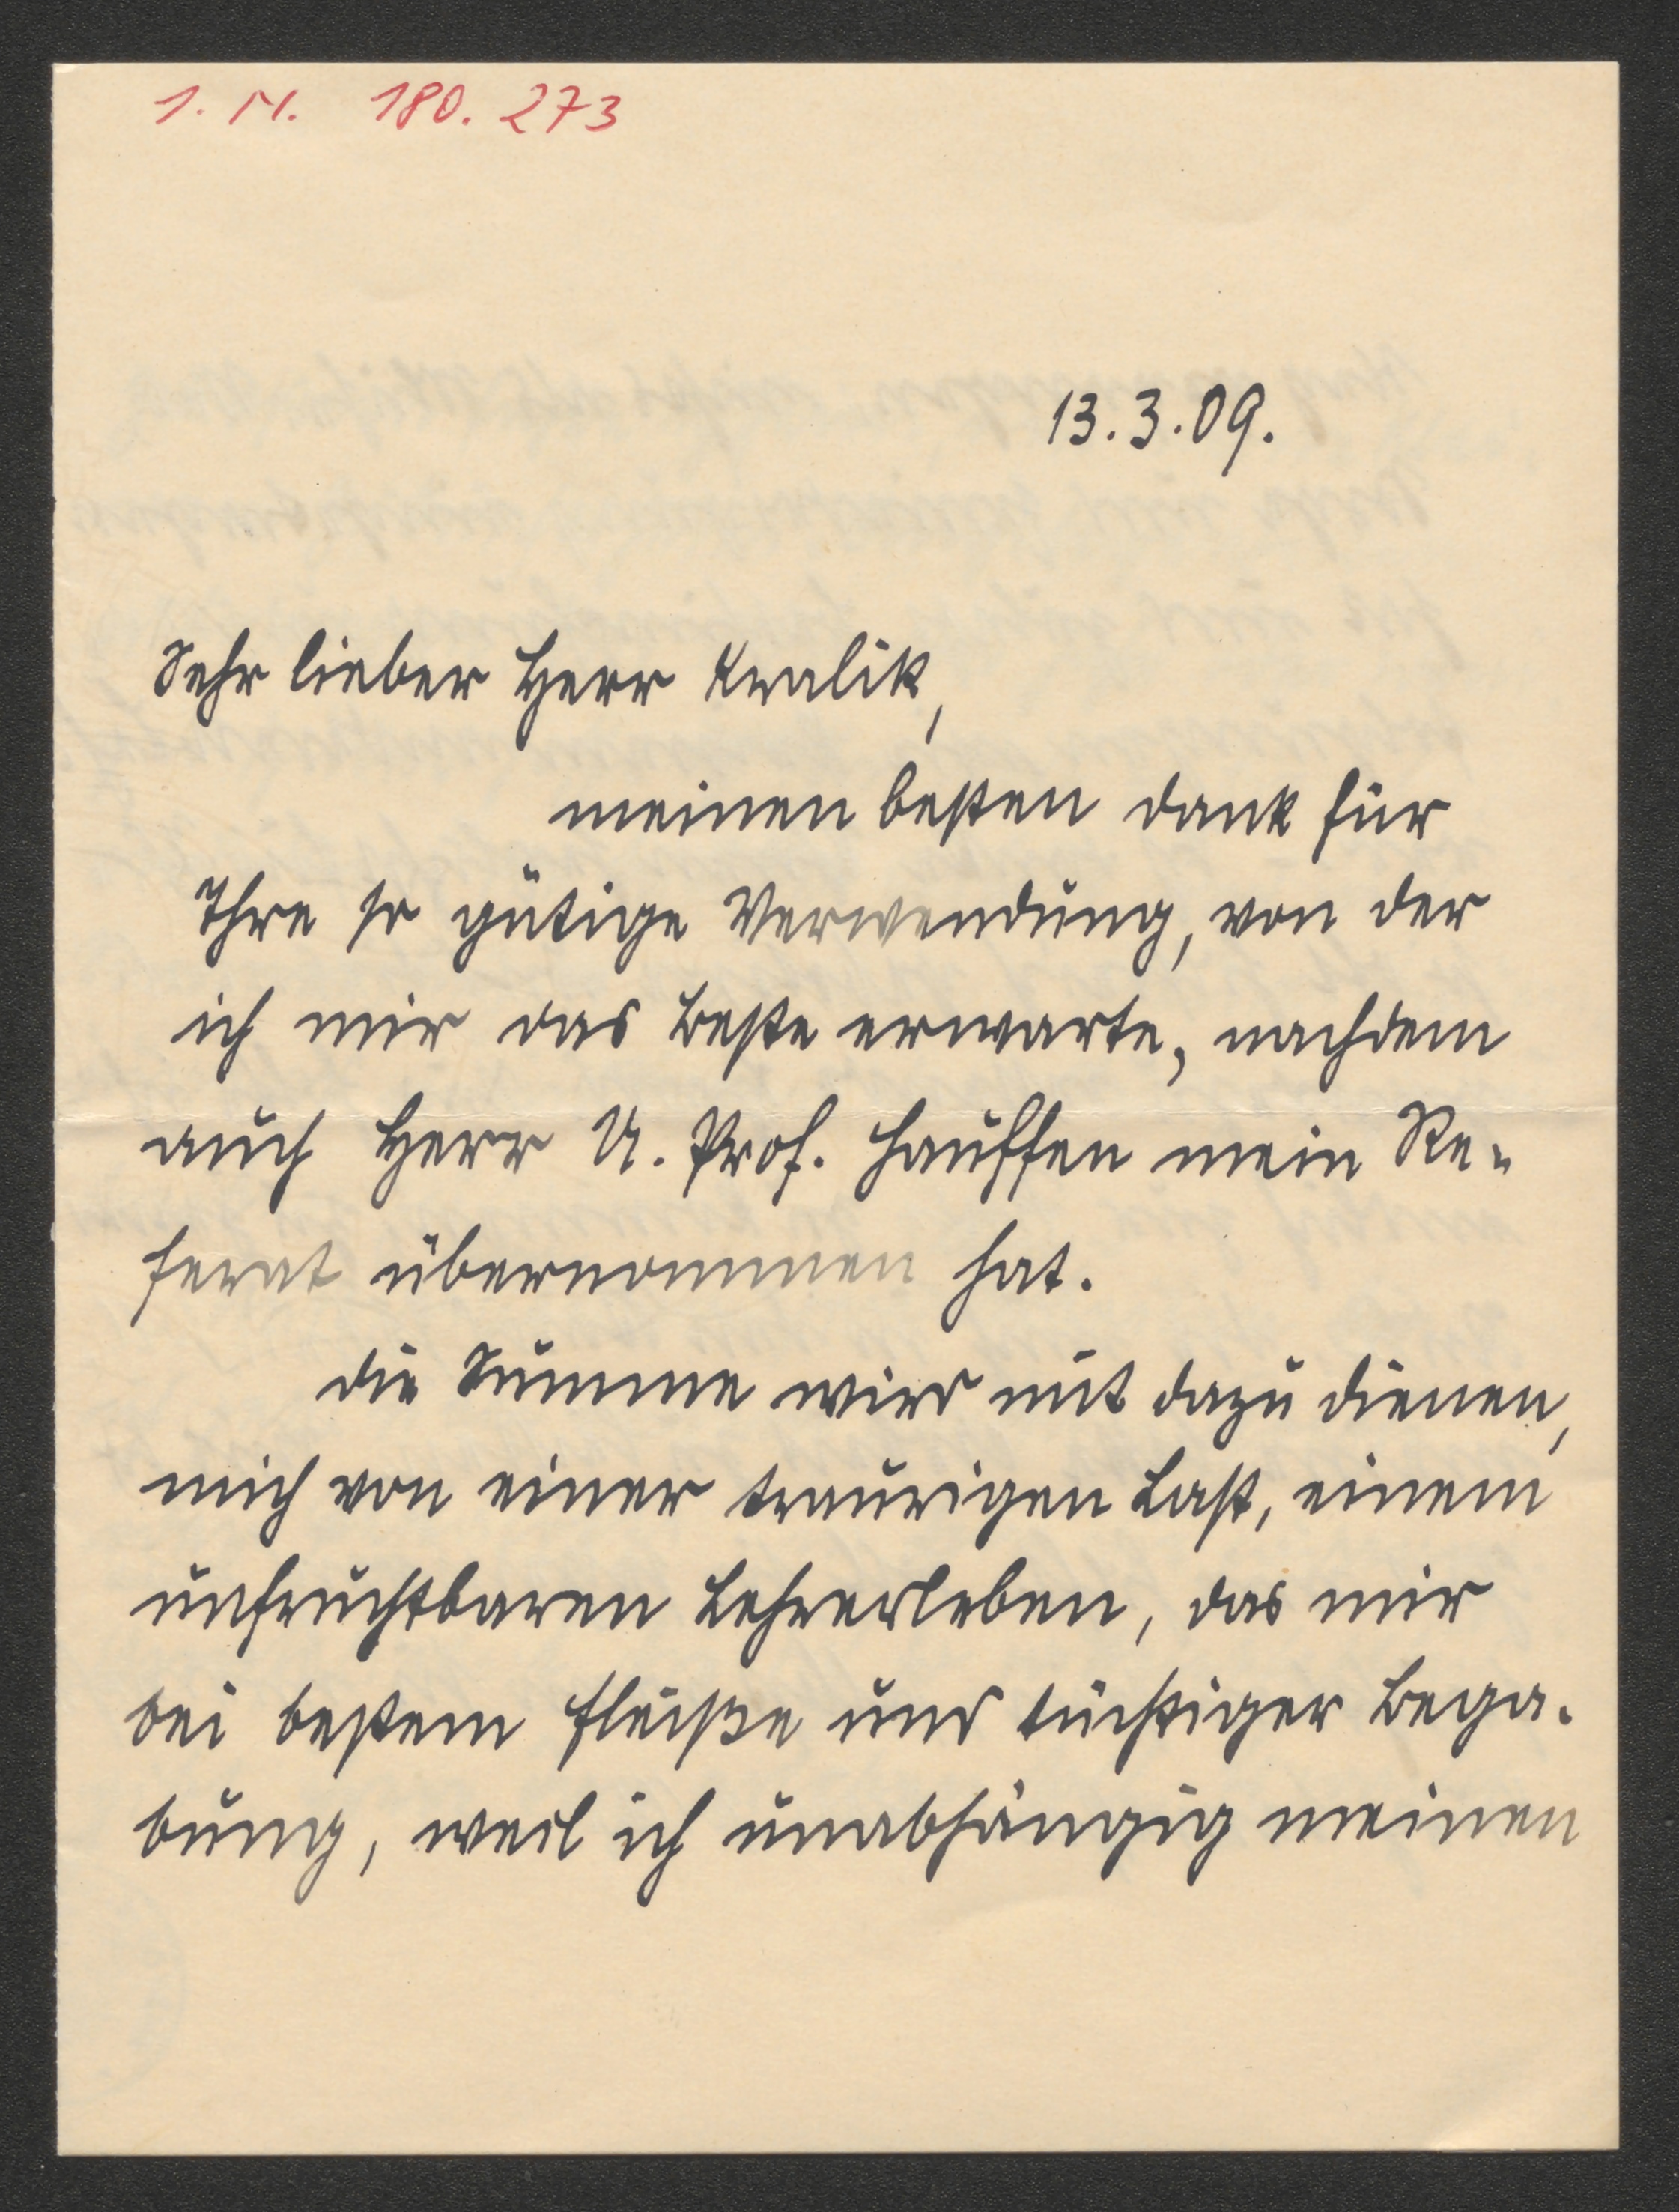 1. N. 180.273
13.3.09.
Sehr lieber Herr Kralik,
meinen besten Dank für
Ihre so gütige Verwendung, von der
ich mir das Beste erwarte, nachdem
auch Herr U. Prof. Hauffen mein Re-
ferat übernommen hat.
Die Summe wird mit dazu dienen,
mich von einer traurigen Last, einem
unfruchtbaren Lehrerleben, das mir
bei bestem Fleiße und tüchtiger Bega-
bung, weil ich unabhängig meinen